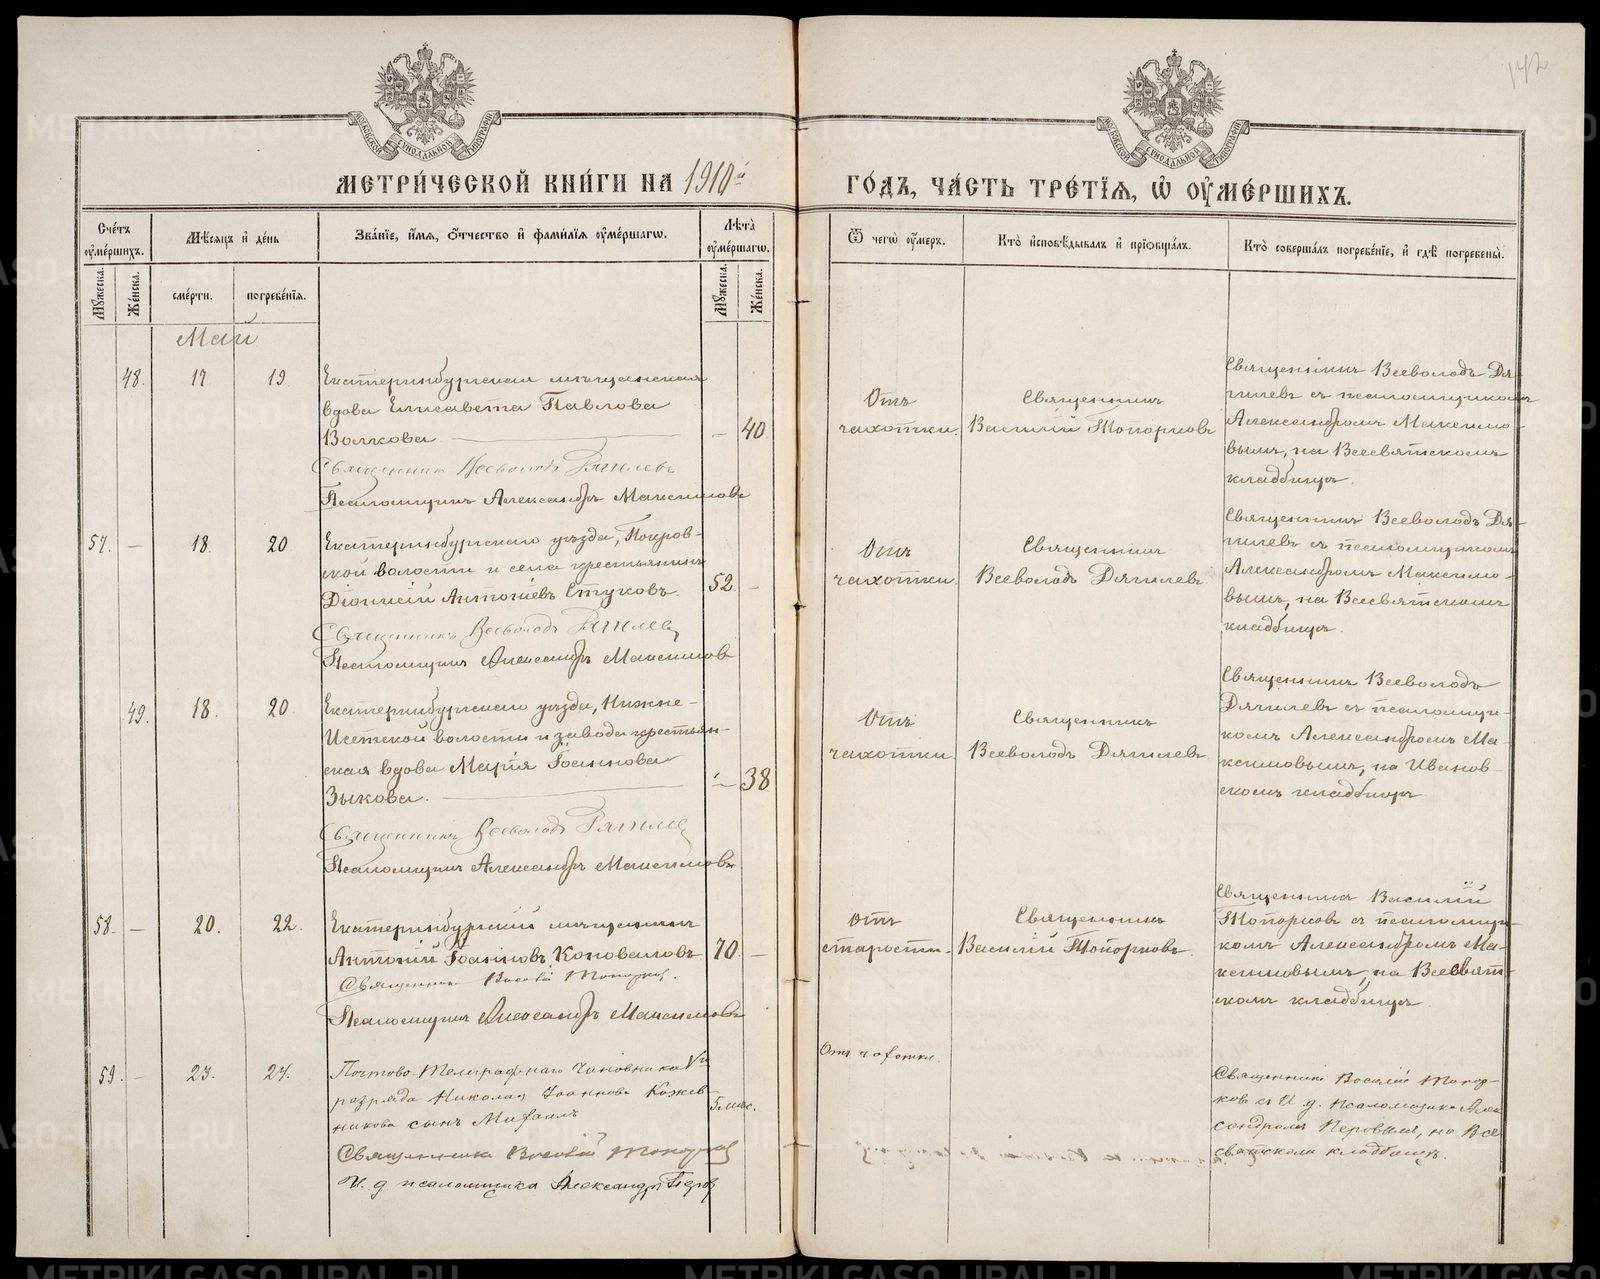 142
МЕТРИ́ЧЕСКОЙ КНИ́ГИ НА 1910й
ГО́ДЪ, ЧА́СТЬ ТРЕ́ТЇѦ, Ѡ҆ ОУ҆МЕ́РШИХЪ.
Сче́тъ оу҆ме́ршихъ.
Мꙋ́жеска.
Же́нска.
Мѣ́сѧцъ и҆ де́нь
сме́рти.
погребе́нїѧ.
Зва́нїе, и҆́мѧ, ѻ҆́тчество и҆ фами́лїѧ оу҆ме́ршагѡ.
Лѣ́та оу҆ме́ршагѡ.
Мꙋ́жеска.
Же́нска.
Ѿ чегѡ̀ оу҆́меръ.
Кто̀ и҆сповѣ́дывалъ и҆ прїѡбща́лъ.
Кто̀ соверша́лъ погребе́нїе, и҆ гдѣ̀ погребены̀.
Май
48. 17 19
Екатеринбургская мѣщанская
вдова Елисавета Павлова
Волкова — — 40
Священникъ Всеволодъ Дягилевъ
Псаломщикъ Александръ Максимовъ
Отъ
чахотки.
Священникъ
Василій Топорковъ
Священникъ Всеволодъ Дя-
гилевъ съ псаломщикомъ
Александромъ Максимо-
вымъ, на Всесвятскомъ
кладбищѣ.
57. — 18. 20
Екатеринбургскаго уѣзда, Покров-
ской волости и села крестьянинъ
Діонисій Антоніевъ Стуковъ. 52. —
Священникъ Всеволодъ Дягилевъ
Псаломщикъ Александръ Максимовъ
Отъ
чахотки.
Священникъ
Всеволодъ Дягилевъ.
Священникъ Всеволодъ Дя-
гилевъ съ псаломщикомъ
Александромъ Максимо-
вымъ, на Всесвятскомъ
кладбищѣ.
49. 18. 20.
Екатеринбургскаго уѣзда, Нижне-
Исетской волости и завода крестьян-
ская вдова Марія Іоаннова
Зыкова. — — 38
Священникъ Всеволодъ Дягилевъ
Псаломщикъ Александръ Максимовъ
Отъ
чахотки
Священникъ
Всеволодъ Дягилевъ
Священникъ Всеволодъ
Дягилевъ съ псаломщи-
комъ Александромъ Ма-
ксимовымъ, на Иванов-
скомъ кладбищѣ
58. — 20. 22.
Екатеринбургскій мѣщанинъ
Антоній Іоанновъ Коноваловъ 70. —
Священникъ Василій Топорковъ.
Псаломщикъ Александръ Максимовъ
Отъ
старости.
Священникъ
Василій Топорковъ.
Священникъ Василій
Топорковъ съ псаломщи-
комъ Александромъ Ма-
ксимовымъ, на Всесвят-
скомъ кладбищѣ
59. — 23. 24.
Почтово-Телеграфнаго Чиновника Vго
разряда Николая Іоаннова Кожев-
никова сынъ Михаилъ 5 мѣс.
Священникъ Василій Топорковъ
И. д. псаломщика Александръ Перовъ
Отъ чахотки.
Священникъ Василій Топор-
ковъ съ И. д. псаломщика Алек
сандромъ Перовымъ, на Все
святскомъ кладбищѣ.
METRIKI.GASO-URAL.RU